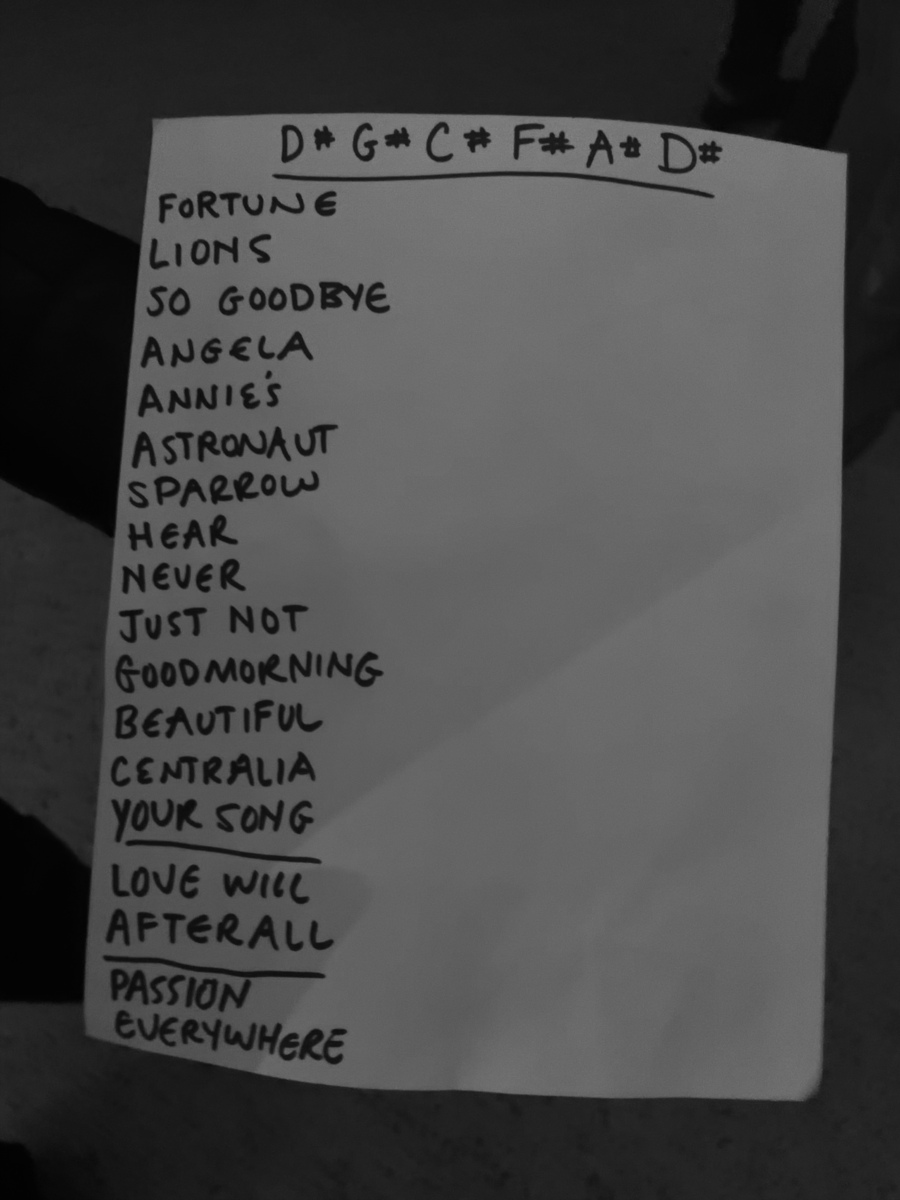 D# G# C# F# A# D#
FORTUNE
LIONS
SO GOODBYE
ANGELA
ANNIE'S
ASTRONAUT
SPARROW
HEAR
NEVER
JUST NOT
GOODMORNING
BEAUTIFUL
CENTRALIA
YOUR SONG
LOVE WILL
AFTERALL
PASSION
EVERYWHERE